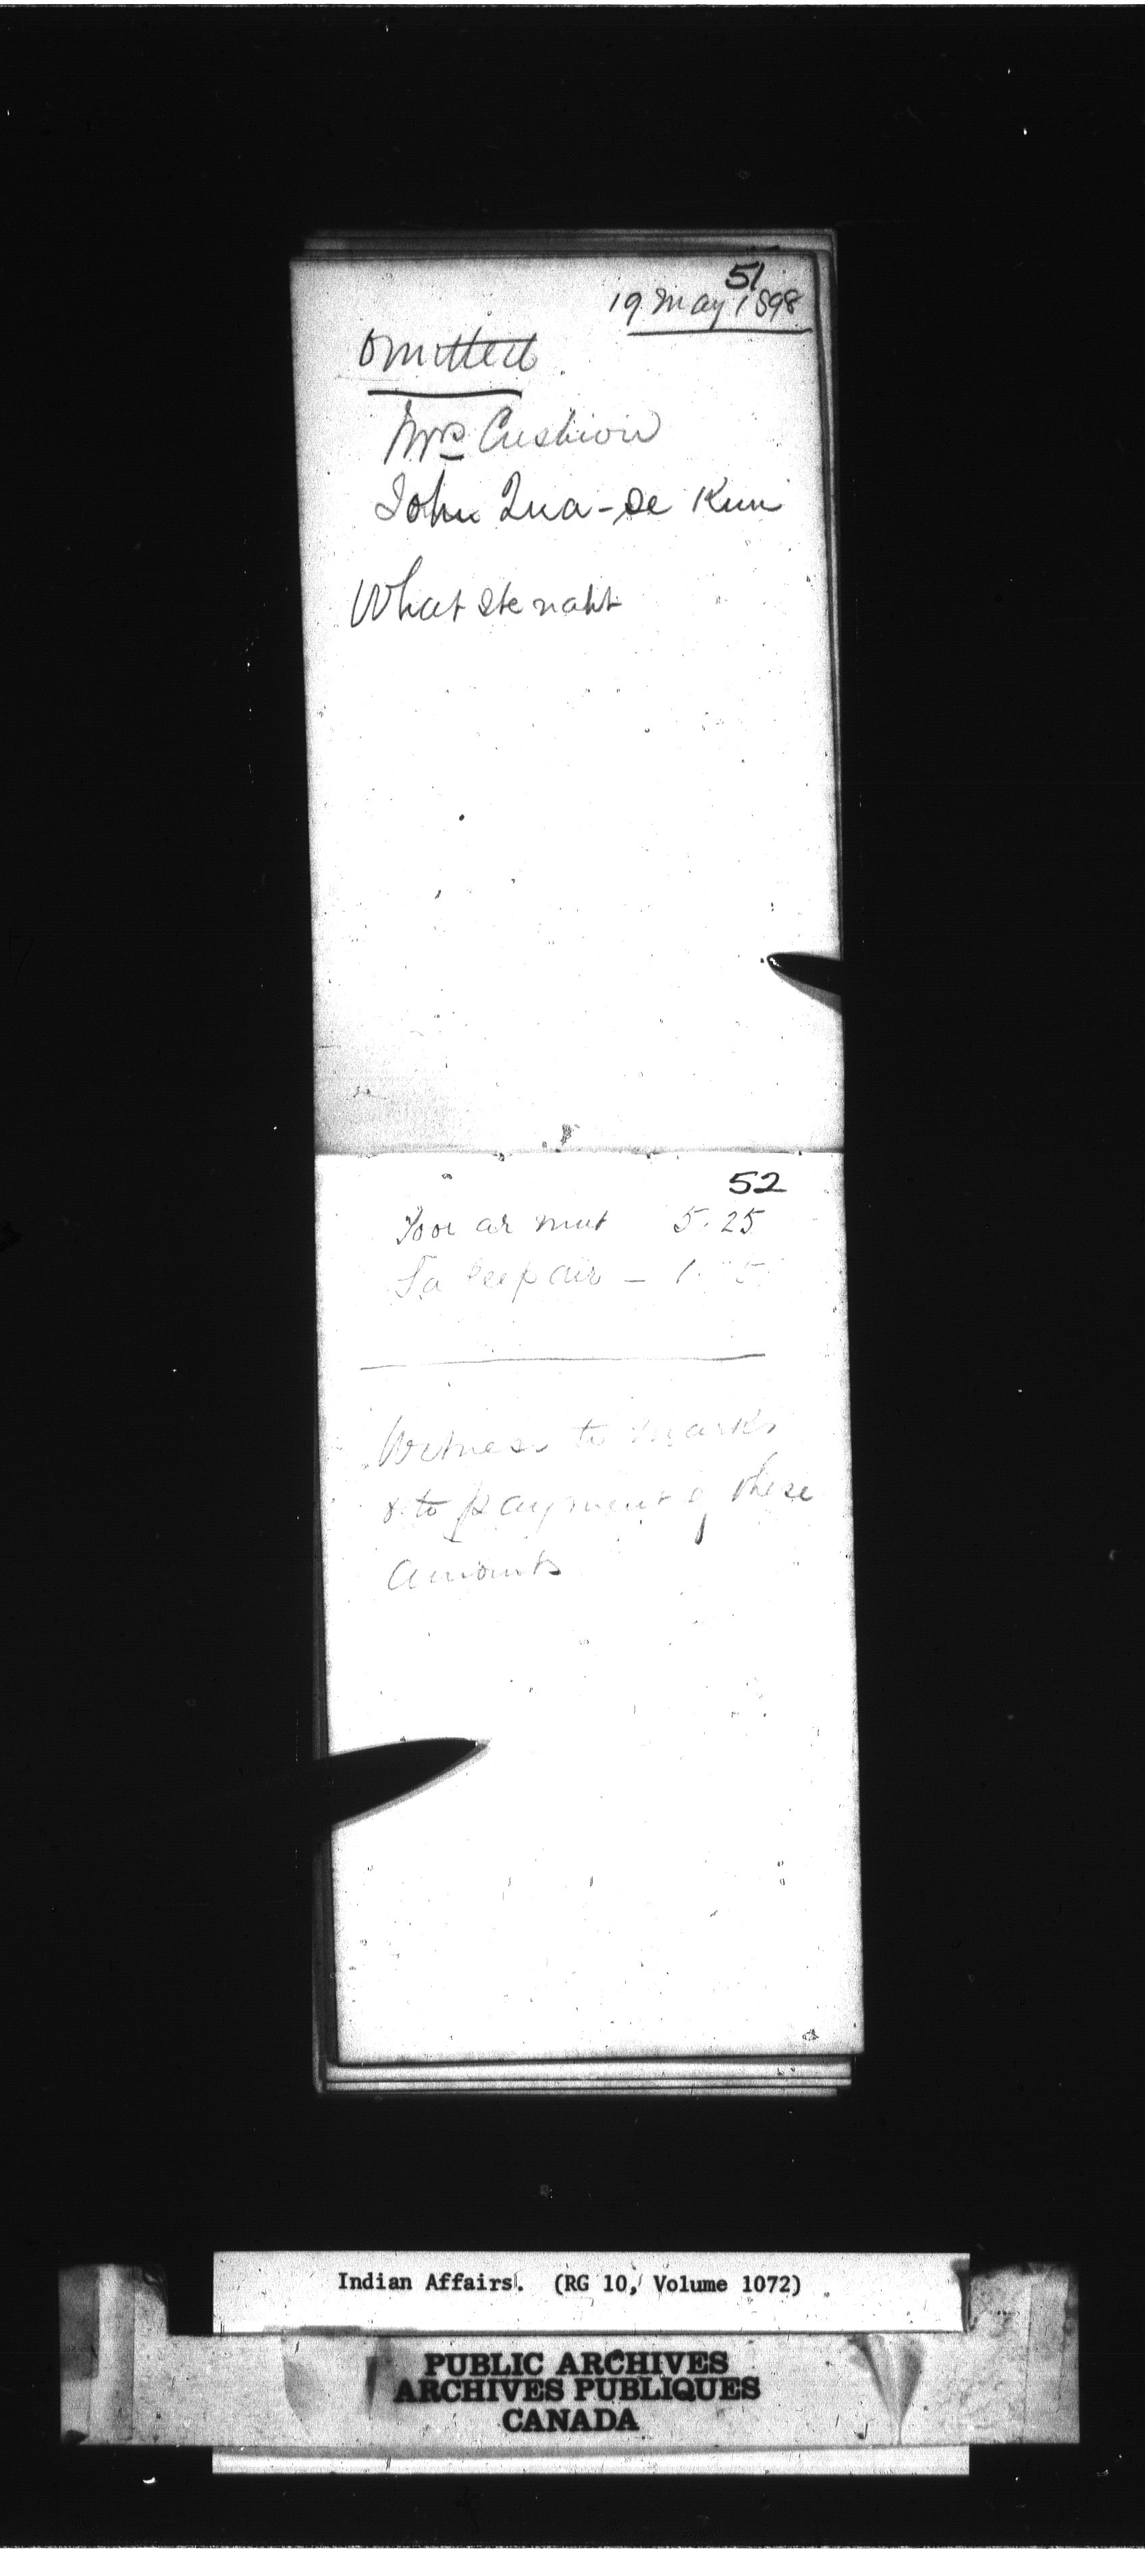 51
19 May 1898
Omitted
Mrs Cushion
John Qua-se Kun
What ste naht
52
5.25
Witness to marks
& to payment of these
amounts
Indian Affairs. (RG 10, Volume 1072)
PUBLIC ARCHIVES
ARCHIVES PUBLIQUES
CANADA